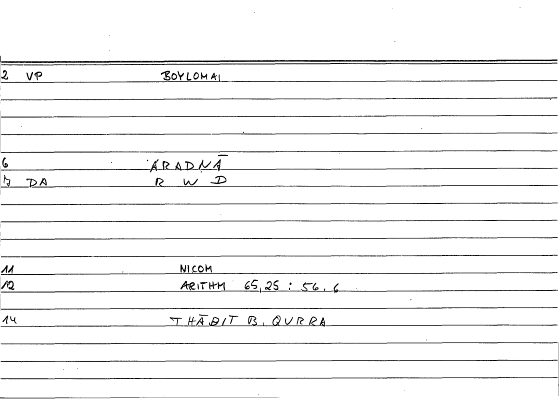 2 VP BOYLOMAI
6 ĀRADNĀ
7 DA R W D
11 NICOM
12 ARITHM 65,25 : 56,6
14 THĀBIT B. QURRA